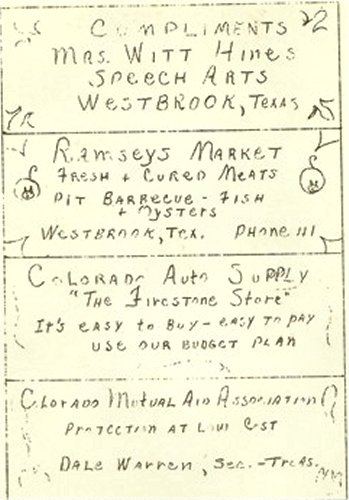 Compliments 22
Mrs. Witt Hines
Speech Arts
Westbrook, Texas
Ramseys Market
Fresh + Cured Meats
Pit Barbecue - Fish
+ Oysters
Westbrook, Tex. Phone 111
Colorado Auto Supply
"The Firestone Store"
It's easy to buy - easy to pay
use our budget plan
Colorado Mutual Aid Association
Protection at Low Cost
Dale Warren, Sec. - Treas.